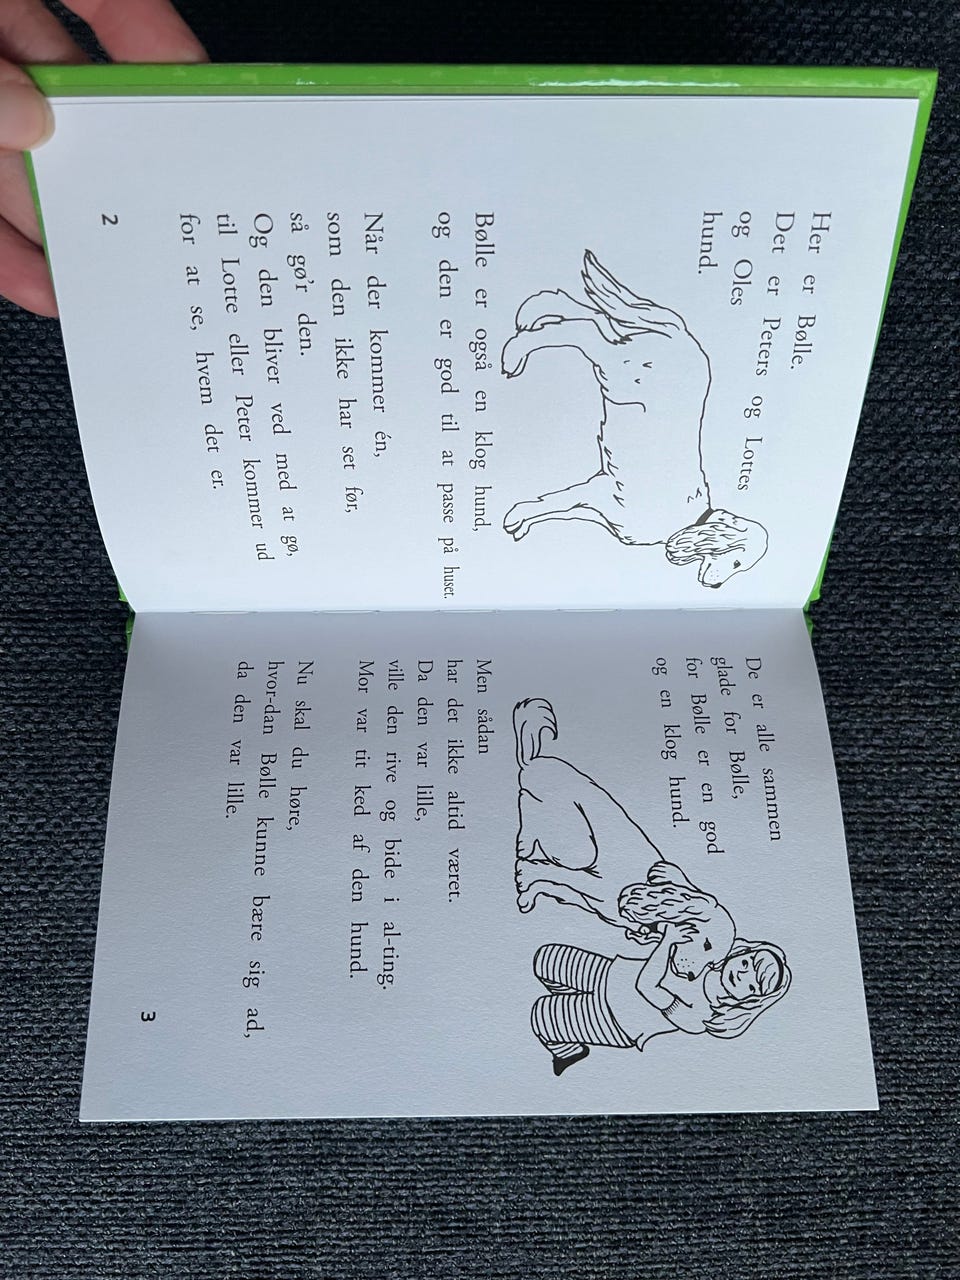 Her er Bølle.
Det er Peters og Lottes
og Oles
hund.
Bølle er også en klog hund,
og den er god til at passe på huset.
Når der kommer én,
som den ikke har set før,
så gø'r den.
Og den bliver ved med at gø,
til Lotte eller Peter kommer ud
for at se, hvem det er.
2
De er alle sammen
glade for Bølle,
for Bølle er en god
og en klog hund.
Men sådan
har det ikke altid været.
Da den var lille,
ville den rive og bide i al-ting.
Mor var tit ked af den hund.
Nu skal du høre,
hvor-dan Bølle kunne bære sig ad,
da den var lille.
3